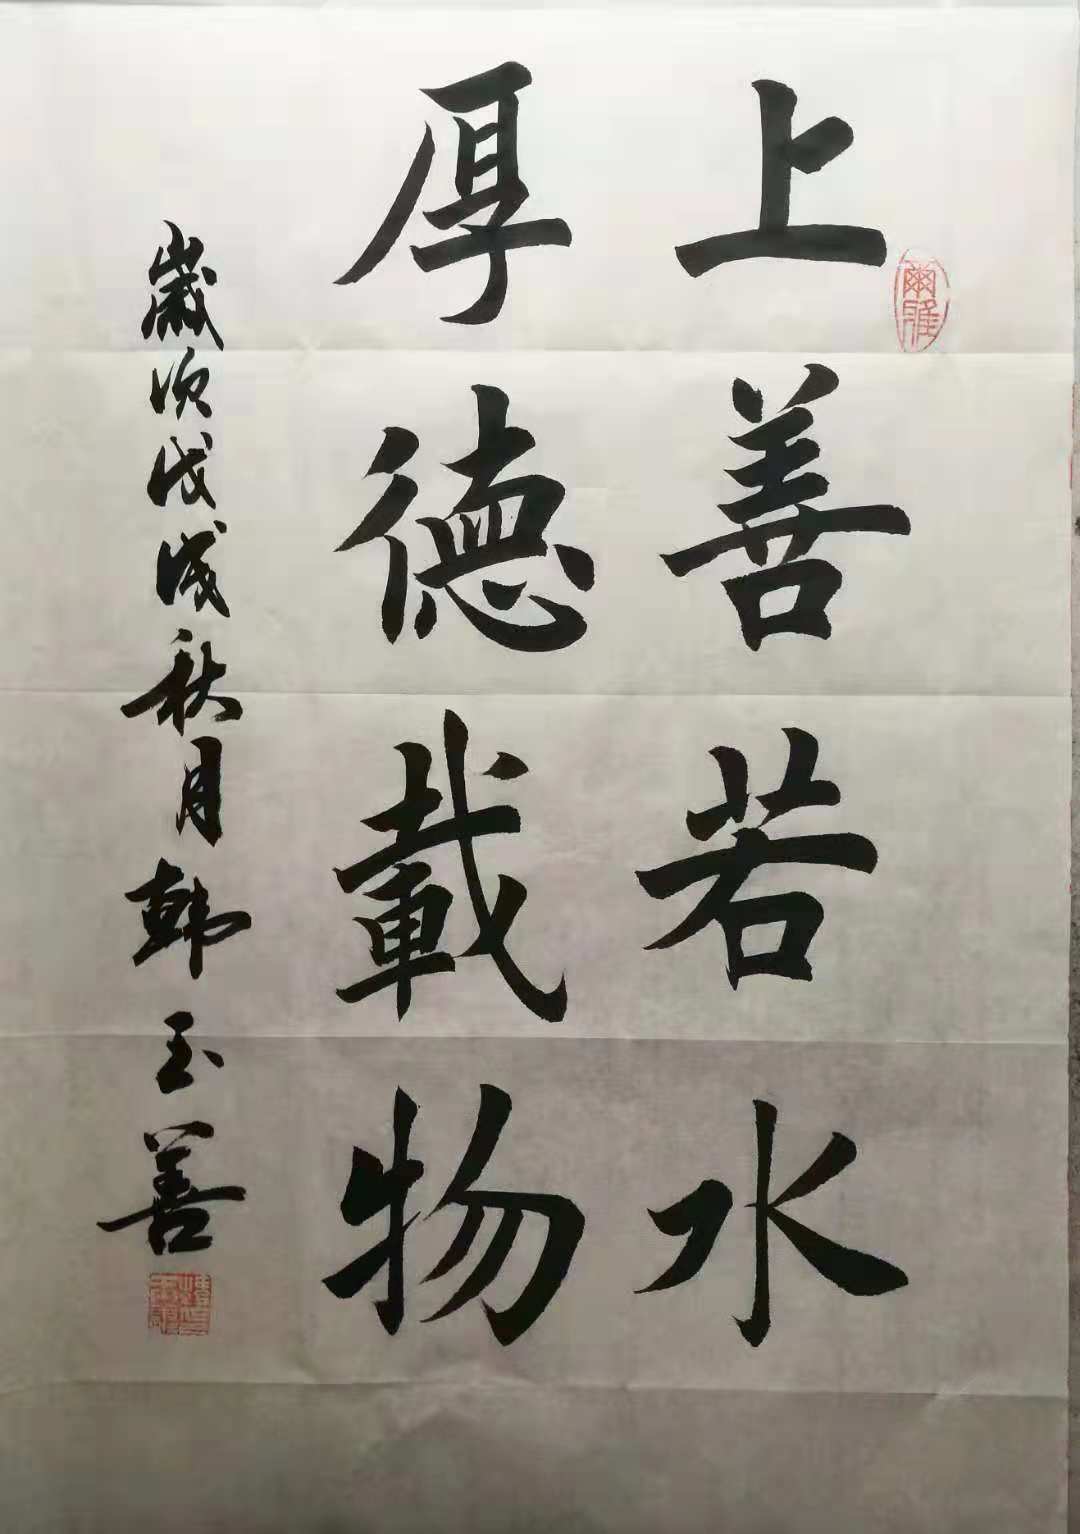 上善若水
厚德載物
歲次戊戌秋月韩玉善
爾雅